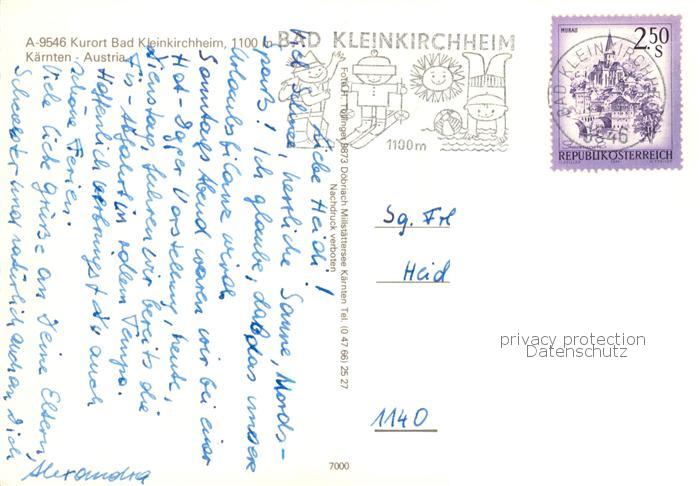 A-9546 Kurort Bad Kleinkirchheim, 1100 m
Kärnten - Austria
BAD KLEINKIRCHHEIM
1100m
MURAU
2.50 S
BAD KLEINKIRCHHEIM
9546
REPUBLIK ÖSTERREICH
Liebe Heidi!
Viel Schnee, herrliche Sonne, Mords-
spaß! Ich glaube, daß das unsere
Urlaubsbilanz wird.
Sonntags Abend waren wir bei einer
Vorstellung, heute,
Dienstag, fuhren wir bereits die
Abfahrt in vollem Tempo.
Hoffentlich verbringst du auch
schöne Ferien.
Viele liebe Grüße an Deine Eltern,
Schwester und natürlich auch an Dich
Alexandra
Nachdruck verboten
9873 Döbriach Millstättersee Kärnten Tel. (0 47 66) 25 27
Sg. Frl
Heid
1140
privacy protection
Datenschutz
7000